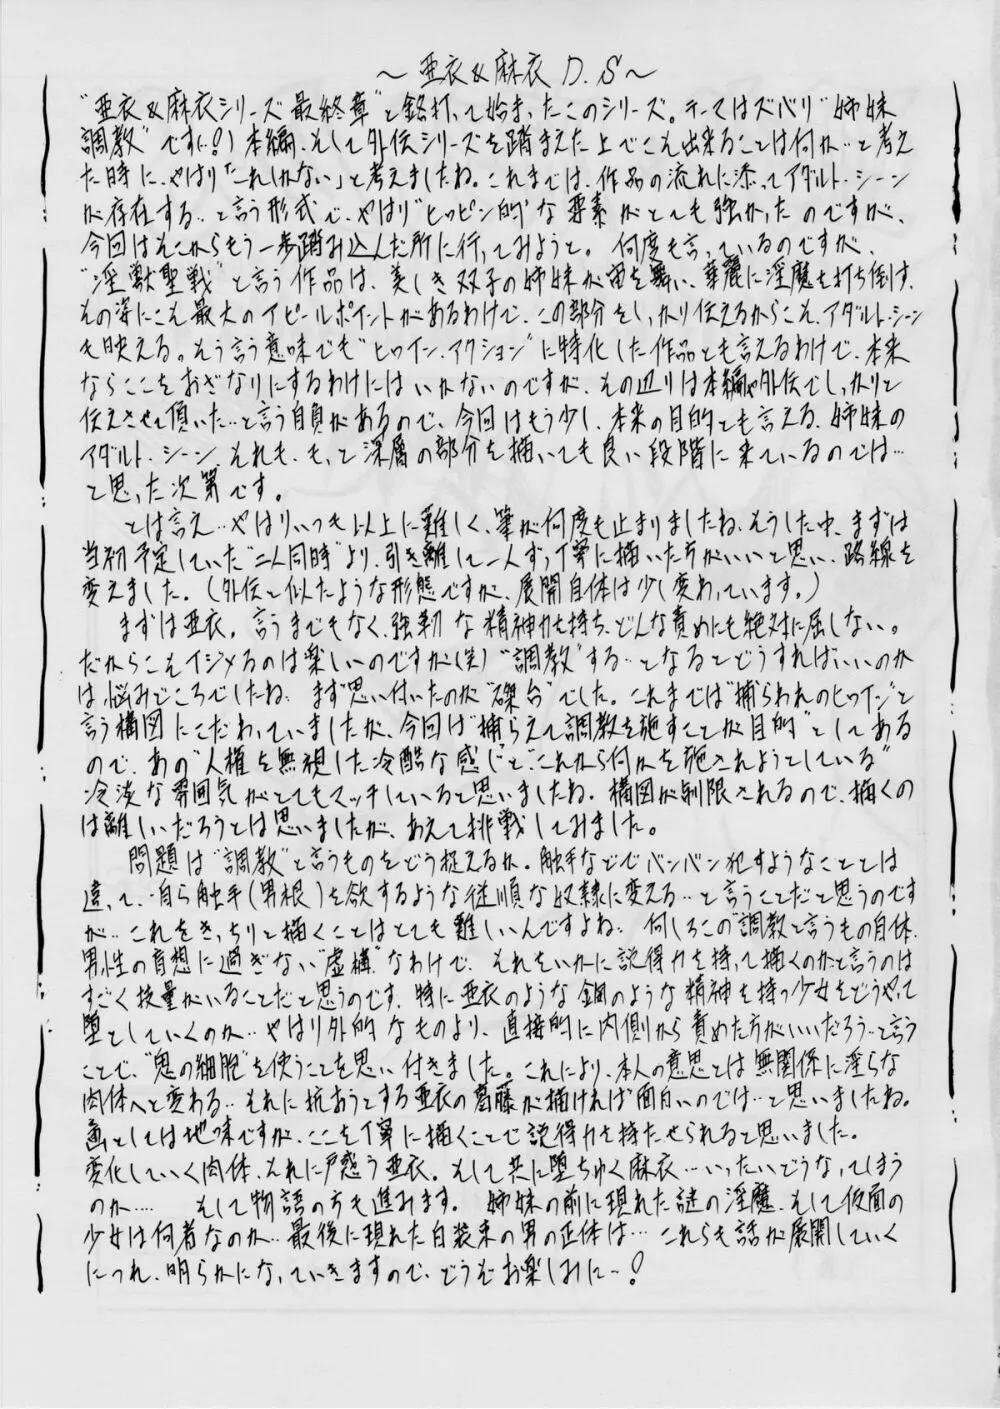 ～ 亜衣&麻衣 D.S ～
"亜衣&麻衣シリーズ最終章"と銘打って始まったこのシリーズ。テーマはズバリ"姉妹
調教"です(!?)本編、そして外伝シリーズを踏まえた上でこそ出来ることは何か…と考え
た時に、やはり「これしかない」と考えましたね。これまでは、作品の流れに添ってアダルト・シーン
が存在する…と言う形式で、やはり"ヒロピン的"な要素がとても強かったのですが、
今回はそこからもう一歩踏み込んだ所に行ってみようと。何度も言っているのですが、
"淫獣聖戦"と言う作品は、美しき双子の姉妹が宙を舞い、華麗に淫魔を打ち倒す、
その姿にこそ最大のアピールポイントがあるわけで、この部分をしっかり伝えるからこそ、アダルト・シーン
も映える。そう言う意味でも"ヒロイン・アクション"に特化した作品とも言えるわけで、本来
ならここをおざなりにするわけにはいかないのですが、その辺りは本編や外伝でしっかりと
伝えさせて頂いた…と言う自負があるので、今回はもう少し、本来の目的とも言える、姉妹の
アダルト・シーン、それも、もっと深層の部分を描いても良い段階に来ているのでは…
と思った次第です。
とは言え…やはりいつも以上に難しく、筆が何度も止まりましたね、そうした中、まずは
当初予定していた"二人同時"より、引き離して一人ずつ丁寧に描いた方がいいと思い、路線を
変えました。(外伝と似たような形態ですが、展開自体は少し変わっています。)
まずは亜衣。言うまでもなく、強靭な精神力を持ち、どんな責めにも絶対に屈しない。
だからこそイジメるのは楽しいのですが(笑)"調教"する…となるとどうすればいいのか
は悩みどころでしたね。まず思い付いたのが"磔台"でした。これまでは"捕らわれのヒロイン"と
言う構図にこだわっていましたが、今回は"捕らえて調教を施すことが目的"としてある
ので、あの"人権を無視した冷酷な感じ"と"これから何かを施されようとしている"
冷淡な雰囲気がとてもマッチしていると思いましたね。構図が制限されるので、描くの
は難しいだろうとは思いましたが、あえて挑戦してみました。
問題は"調教"と言うものをどう捉えるか。触手などでバンバン犯すようなこととは
違って、自ら触手(男根)を欲するような従順な奴隷に変える…と言うことだと思うのです
が…これをきっちりと描くことはとても難しいんですよね。何しろこの"調教と言うもの自体、
男性の盲想に過ぎない"虚構"なわけで、それをいかに説得力を持って描くのかと言うのは
すごく技量がいることだと思うのです。特に亜衣のような鋼のような精神を持つ少女をどうやって
堕としていくのか…やはり外的なものより、直接的に内側から責めた方がいいだろう…と言う
ことで、"鬼の細胞"を使うことを思い付きました。これにより、本人の意思とは無関係に淫らな
肉体へと変わる…それに抗おうとする亜衣の葛藤が描ければ面白いのでは…と思いましたね。
画としては地味ですが、ここを丁寧に描くことで説得力を持たせられると思いました。
変化していく肉体、それに戸惑う亜衣。そして共に堕ちゆく麻衣…いったいどうなってしまう
のか…… そして物語の方も進みます。姉妹の前に現れた謎の淫魔、そして仮面の
少女は何者なのか…最後に現れた白装束の男の正体は… これらも話が展開していく
につれ、明らかになっていきますので、どうぞお楽しみに～!